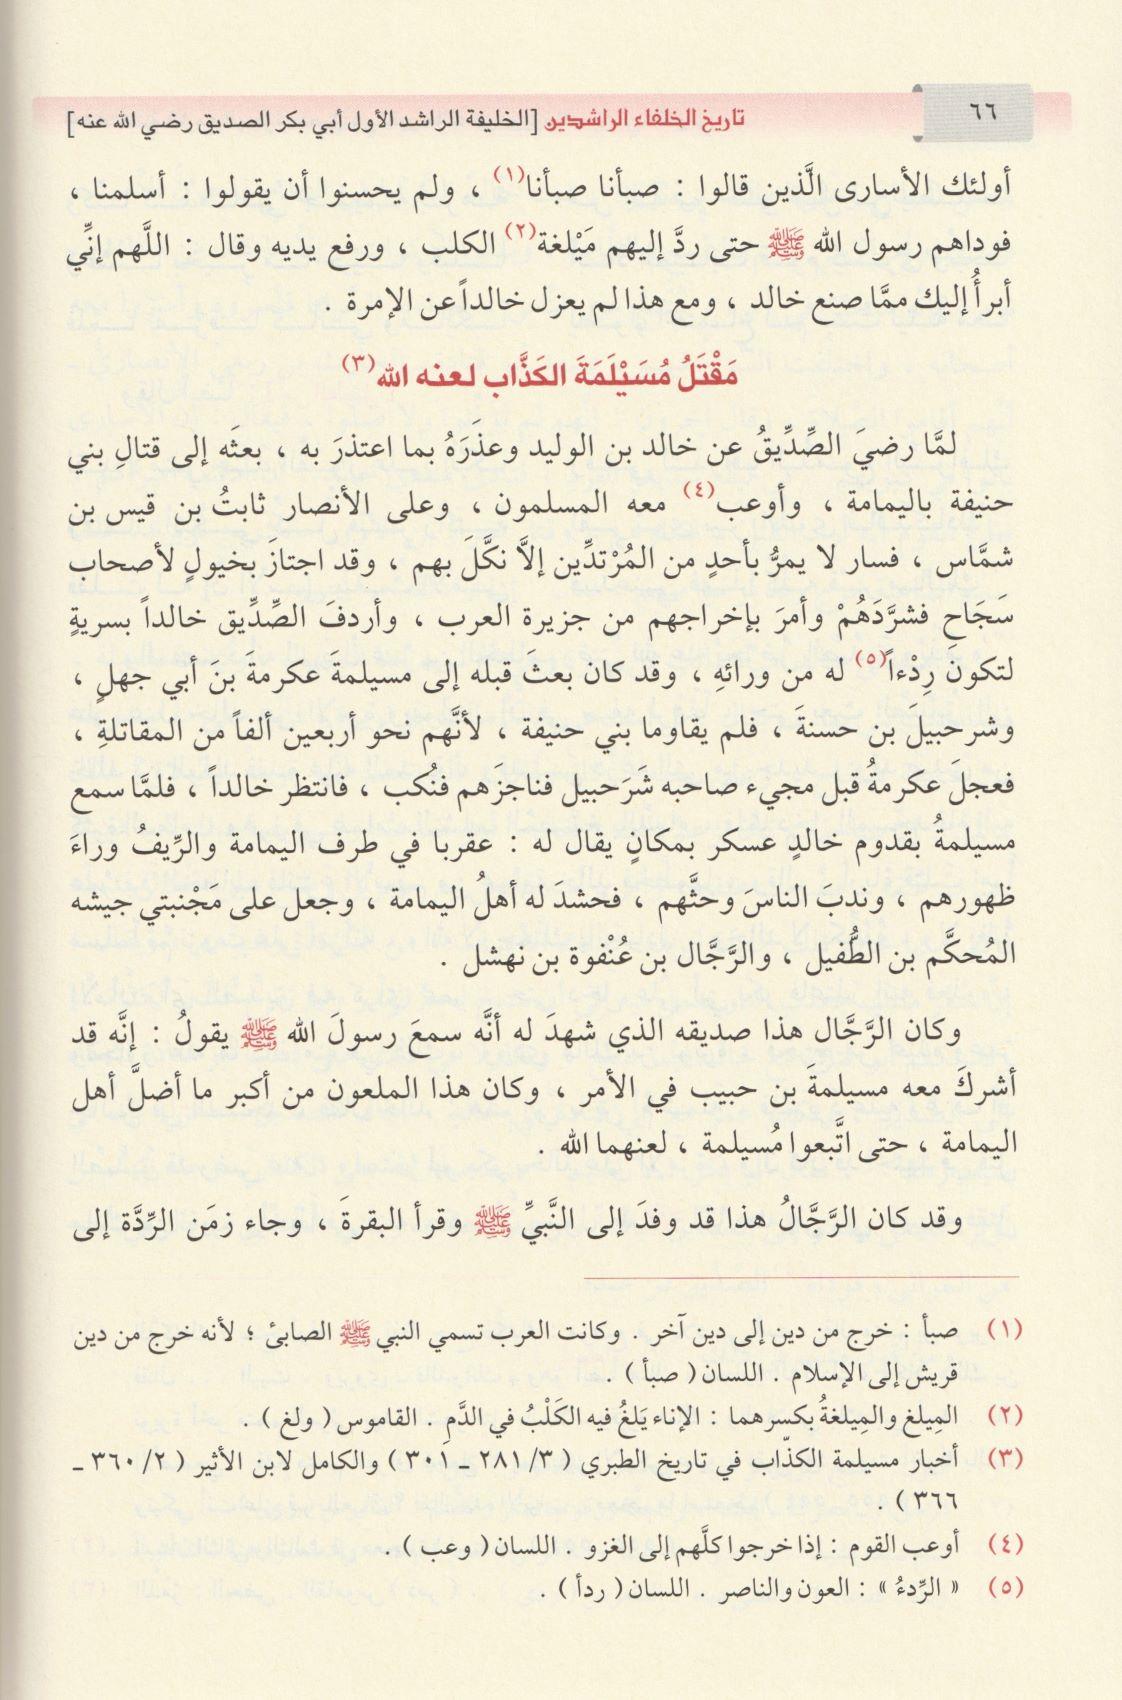 ٦٦
تاريخ الخلفاء الراشدين [الخليفة الراشد الأول أبي بكر الصديق رضي الله عنه]
أولئك الأسارى الَّذين قالوا : صبأنا صبأنا(١) ، ولم يحسنوا أن يقولوا : أسلمنا ،
فوداهم رسول الله ﷺ حتى ردَّ إليهم مَيْلغة(٢) الكلب ، ورفع يديه وقال : اللَّهم إنِّي
أبرأُ إليك ممَّا صنع خالد ، ومع هذا لم يعزل خالداً عن الإمرة .
مَقْتَلُ مُسَيْلَمَةَ الكَذَّاب لعنه الله(٣)
لمَّا رضيَ الصِّدِّيقُ عن خالد بن الوليد وعذَرَهُ بما اعتذرَ به ، بعثَه إلى قتالِ بني
حنيفة باليمامة ، وأوعب(٤) معه المسلمون ، وعلى الأنصار ثابتُ بن قيس بن
شمَّاس ، فسار لا يمرُّ بأحدٍ من المُرْتدِّين إلاَّ نكَّلَ بهم ، وقد اجتازَ بخيولٍ لأصحاب
سَجَاحِ فشرَّدَهُمْ وأمرَ بإخراجهم من جزيرة العرب ، وأردفَ الصِّدِّيق خالداً بسريةٍ
لتكون رِدْءاً(٥) له من ورائهِ ، وقد كان بعثَ قبله إلى مسيلمةَ عكرمةَ بنَ أبي جهلٍ ،
وشرحبيلَ بن حسنةَ ، فلم يقاوما بني حنيفة ، لأنَّهم نحو أربعين ألفاً من المقاتلةِ ،
فعجلَ عكرمةُ قبل مجيء صاحبه شَرَحبيل فناجزَهم فنُكب ، فانتظر خالداً ، فلمَّا سمع
مسيلمةُ بقدوم خالدٍ عسكر بمكانٍ يقال له : عقربا في طرف اليمامة والرِّيفُ وراءَ
ظهورهم ، وندبَ الناسَ وحثَّهم ، فحشدَ له أهلُ اليمامة ، وجعل على مَجْنبتي جيشه
المُحكَّم بن الطُّفيل ، والرَّجَّال بن عُنْفوة بن نهشل .
وكان الرَّجَّال هذا صديقه الذي شهدَ له أنَّه سمعَ رسولَ الله ﷺ يقولُ : إنَّه قد
أشركَ معه مسيلمةَ بن حبيب في الأمر ، وكان هذا الملعون من أكبر ما أضلَّ أهل
اليمامة ، حتى اتَّبعوا مُسيلمة ، لعنهما الله .
وقد كان الرَّجَّالُ هذا قد وفدَ إلى النَّبيِّ ﷺ وقرأ البقرةَ ، وجاء زمَن الرِّدَّة إلى
(١) صبأ : خرج من دين إلى دين آخر . وكانت العرب تسمي النبي ﷺ الصابئ ؛ لأنه خرج من دين
قريش إلى الإسلام . اللسان ( صبأ ) .
(٢) المِيلغ والمِيلغةُ بكسرهما : الإناء يَلغُ فيه الكَلْبُ في الدَّمِ . القاموس ( ولغ ) .
(٣) أخبار مسيلمة الكذّاب في تاريخ الطبري ( ٣/ ٢٨١ ـ ٣٠١ ) والكامل لابن الأثير ( ٢/ ٣٦٠ ـ
٣٦٦ ) .
(٤) أوعب القوم : إذا خرجوا كلَّهم إلى الغزو . اللسان ( وعب ) .
(٥) « الرِّدءُ » : العون والناصر . اللسان ( ردأ ) .